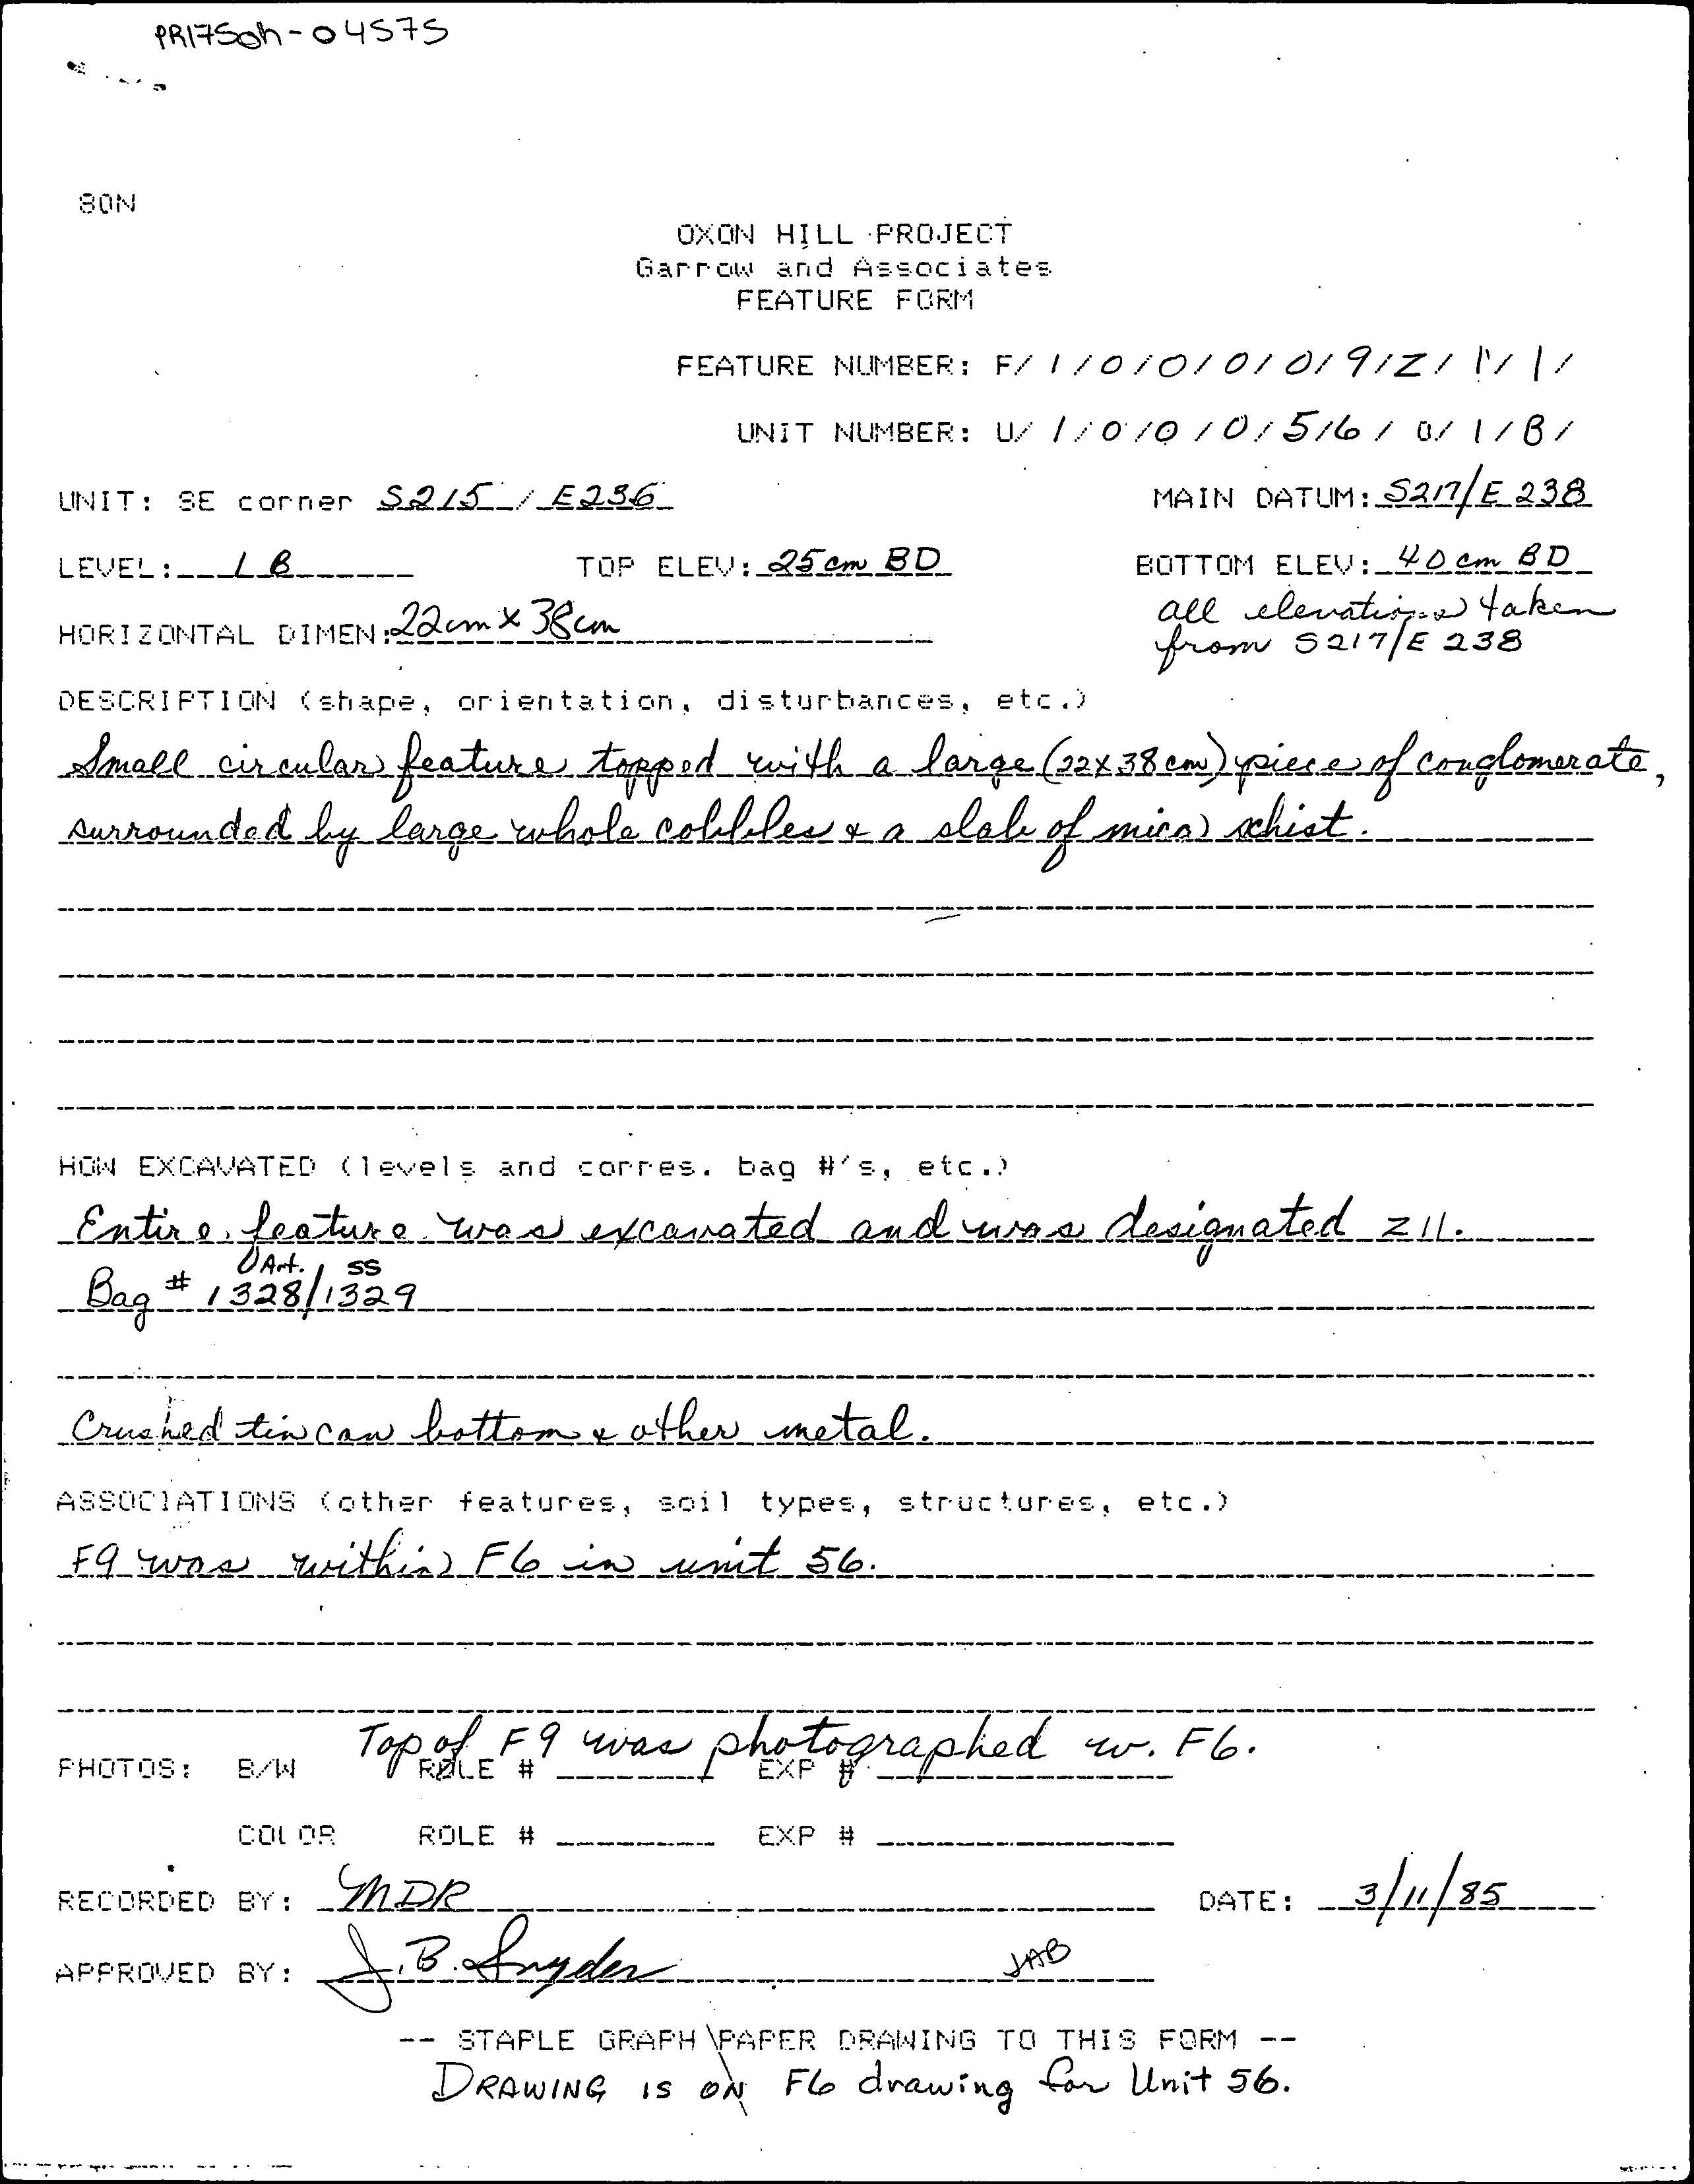 PR175oh-04575
80N
OXON HILL PROJECT
Garrow and Associates
FEATURE FORM
FEATURE NUMBER: F/ 1 / 0 / 0 / 0 / 0 / 9 / Z / 1 / 1 /
UNIT NUMBER: U/ 1 / 0 / 0 / 0 / 5 / 6 / 0 / 1 / B /
UNIT: SE corner S215 / E236 MAIN DATUM: S217/E 238
LEVEL: 1 B TOP ELEV: 25 cm BD BOTTOM ELEV: 40 cm BD
all elevations taken
HORIZONTAL DIMEN: 22cm x 38cm from S217/E 238
DESCRIPTION (shape, orientation, disturbances, etc.)
Small circular feature topped with a large (22x38 cm) piece of conglomerate,
surrounded by large whole cobbles & a slab of mica schist.
HOW EXCAVATED (levels and corres. bag #'s, etc.)
Entire feature was excavated and was designated Z11.
Art. SS
Bag # 1328/1329
Crushed tin can bottom & other metal.
ASSOCIATIONS (other features, soil types, structures, etc.)
F9 was within F6 in unit 56.
Top of F9 was photographed w. F6.
PHOTOS: B/W ROLE # EXP #
COLOR ROLE # EXP #
RECORDED BY: MDR DATE: 3/11/85
APPROVED BY: J.B. Snyder JAB
-- STAPLE GRAPH PAPER DRAWING TO THIS FORM --
DRAWING IS ON F6 drawing for Unit 56.